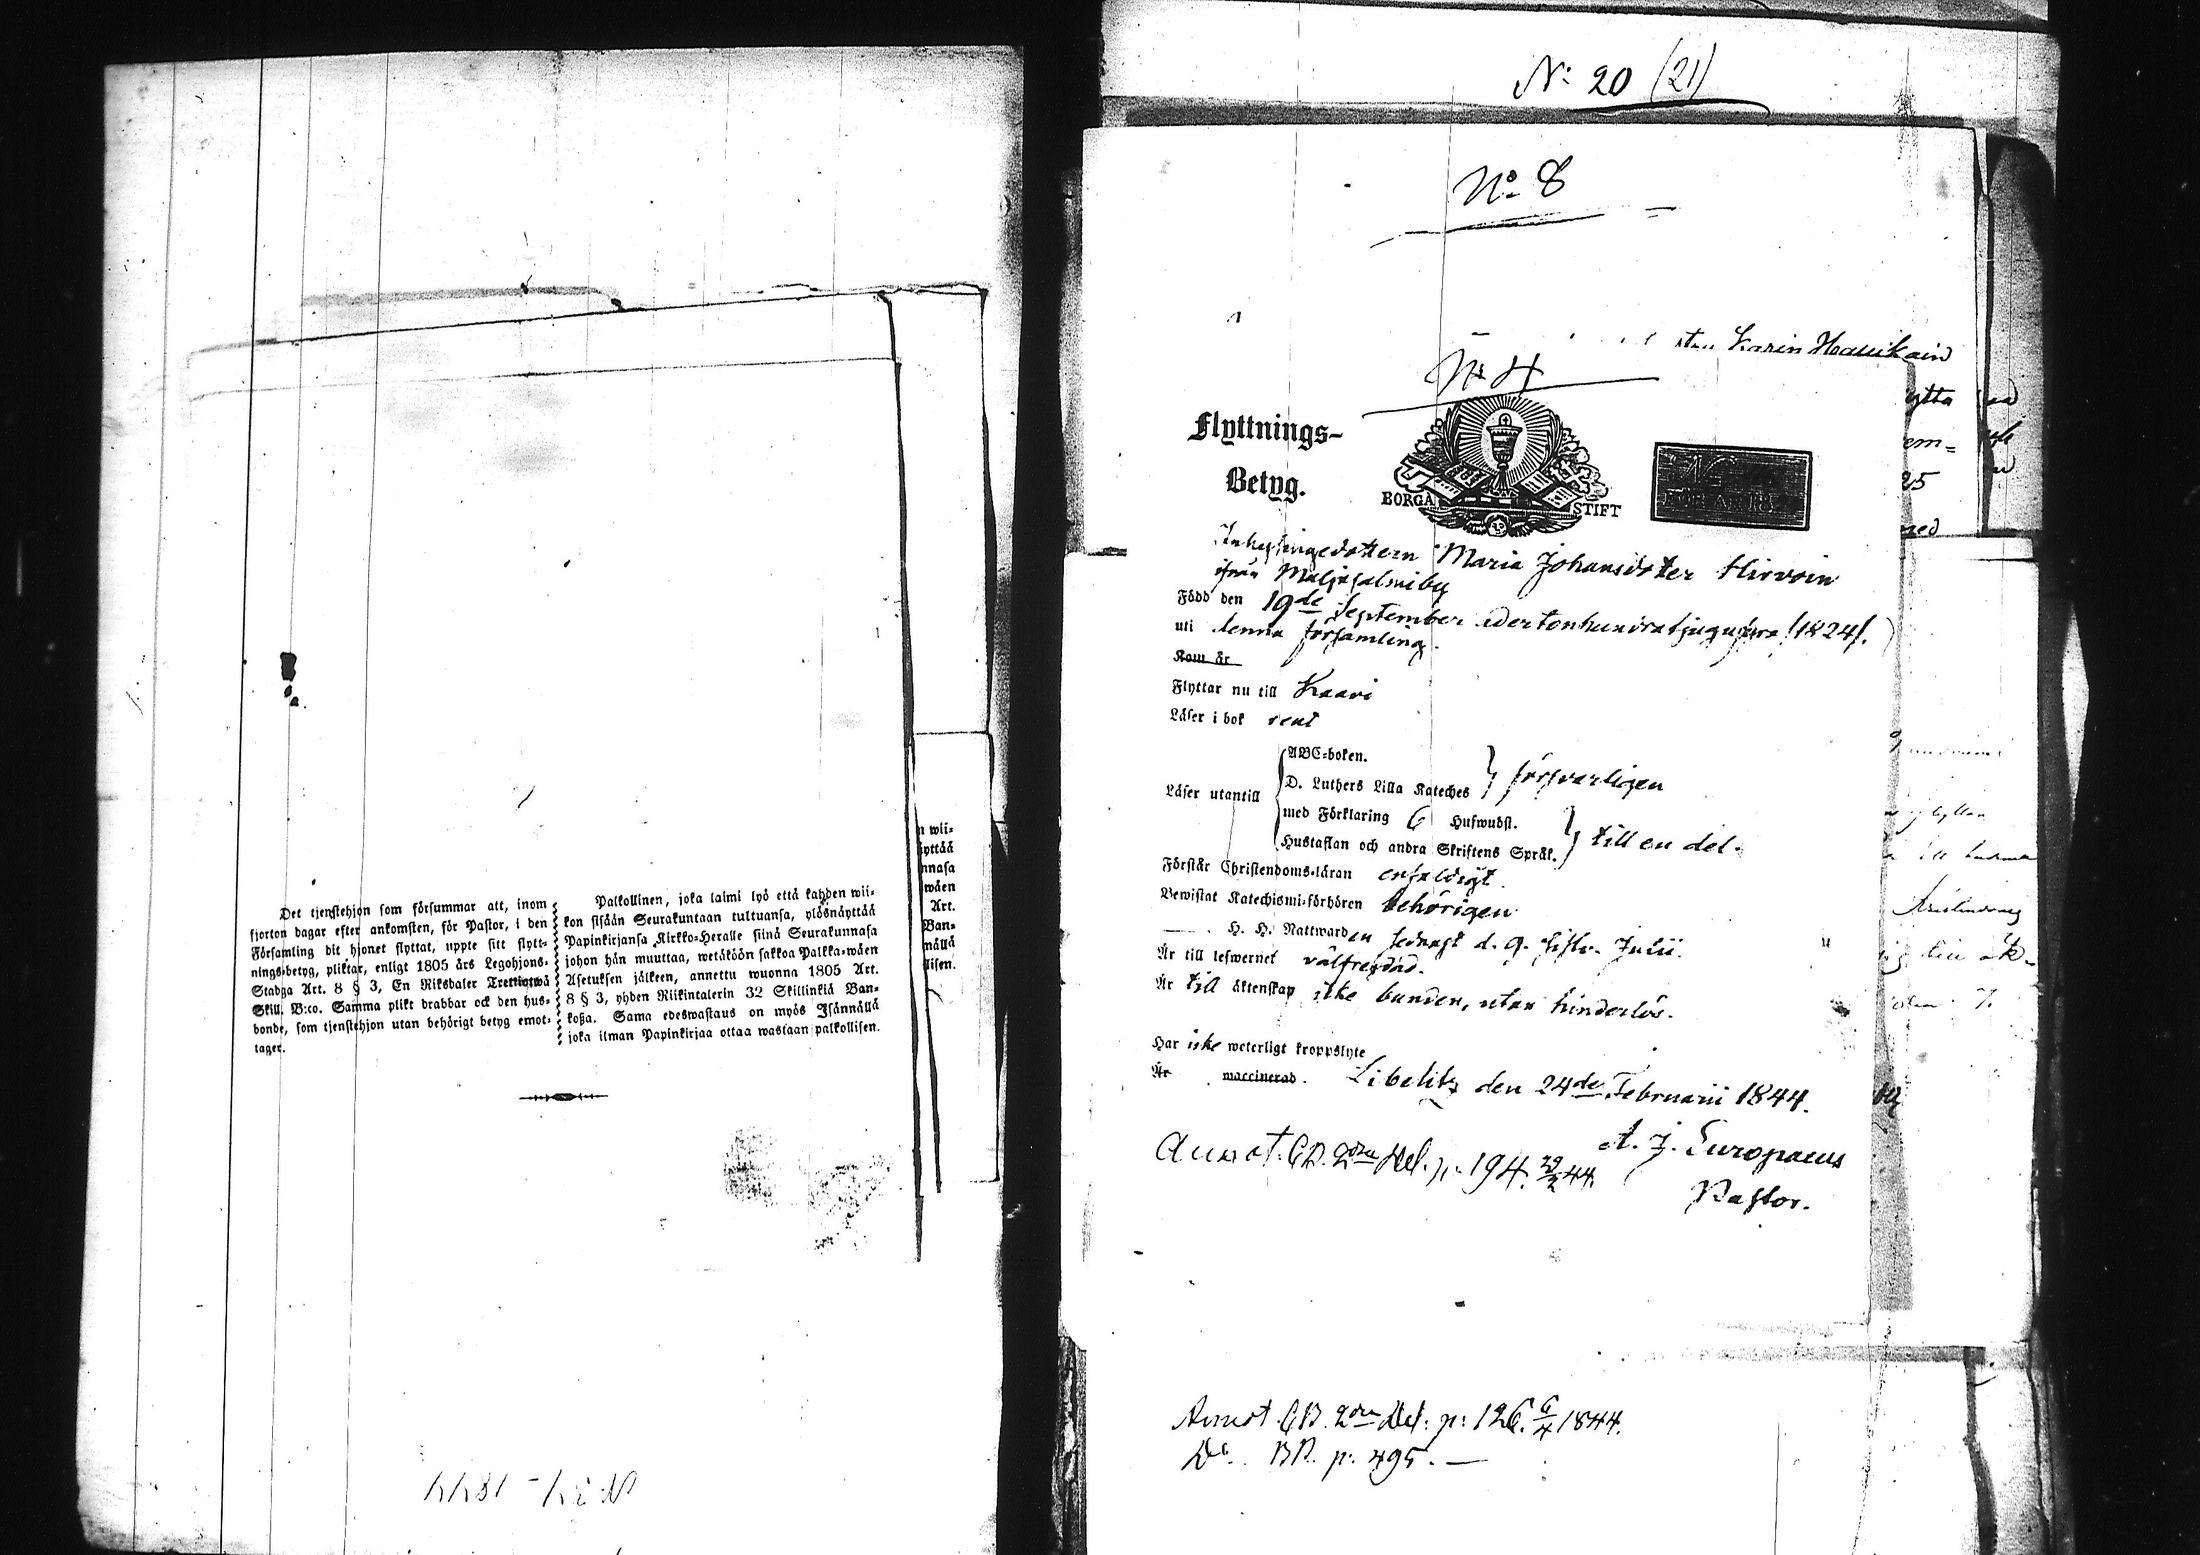 Det tjenstehjon som försummar att, inom
fjorton dagar efter ankomsten, för Pastor, i den
Församling dit hjonet flyttat, uppte sitt flytt-
nings-betyg, pliktar, enligt 1805 års Legohjons-
Stadga Art. 8 § 3, En Riksdaler Trettiotwå
Skill. B:co. Samma plikt drabbar ock den hus-
bonde, som tjenstehjon utan behörigt betyg emot-
tager.
Palkollinen, joka laimi lyö että kahden wii-
kon sisään Seurakuntaan tultuansa, ylösnäyttää
Papinkirjansa Kirkko-Heralle siinä Seurakunnasa
johon hän muuttaa, wetäköön sakkoa Palkka-wäen
Asetuksen jälkeen, annettu wuonna 1805 Art.
8 § 3, yhden Riikintalerin 32 Skillinkiä Ban-
koßa. Sama edeswastaus on myös Isännällä
joka ilman Papinkirjaa ottaa wastaan palkollisen.
n wii-
yttää
nnasa
wäen
Art.
Ban-
nällä
llisen.
N:o 4 - 1844
N: 20 (21)
No 8
Karin
No 4
ytta
em=
25
med
Flyttnings-
Betyg.
BORGÅ STIFT
Inhysingedottern Maria Johansdotter Hirvoin
ifrån Maljasalmi by
Född den 19de September adertonhundratjugufyra /1824/.
uti denna församling.
Kom år
Flyttar nu till Kaavi
Läser i bok rent
ABC-boken.
Läser utantill D. Luthers Lilla Kateches försvarligen
med Förklaring 6 Hufwudst.
Hustaflan och andra Skriftens Språk. till en del.
Förstår Christendoms-läran enfaldigt
Bewistat Katechismi-förhören behörigen
H. H. Nattwarden sednast d. 9. sistl. Julii.
Är till lefwernet välfrejdad.
Är till äktenskap icke bunden, utan hinderlös.
Har icke weterligt kroppslyte
Är waccinerad. Libelits den 24de Februarii 1844.
A. J. Europaeus
Pastor.
Annot. C.B. 2dra Del. p. 194. 29/2 44.
Annot. C.B. 2dra Del: p: 126. 6/4 1844.
Do. B.B. p. 495. —